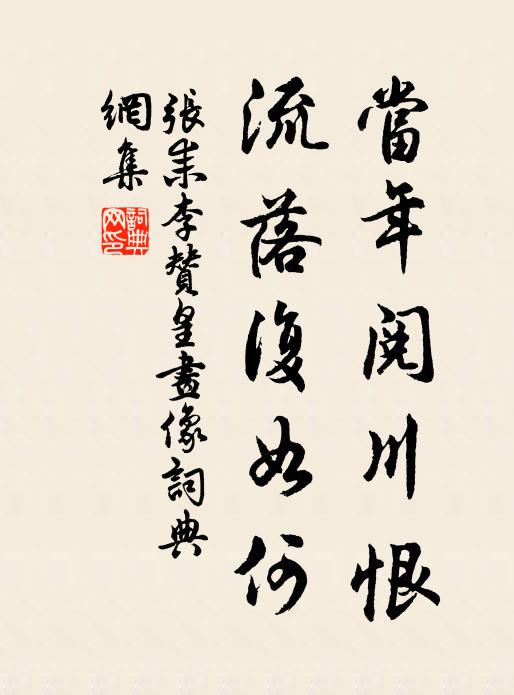 當年閱川恨
流落復如何
張耒李贊皇畫像詞典
網集
詞典
網印